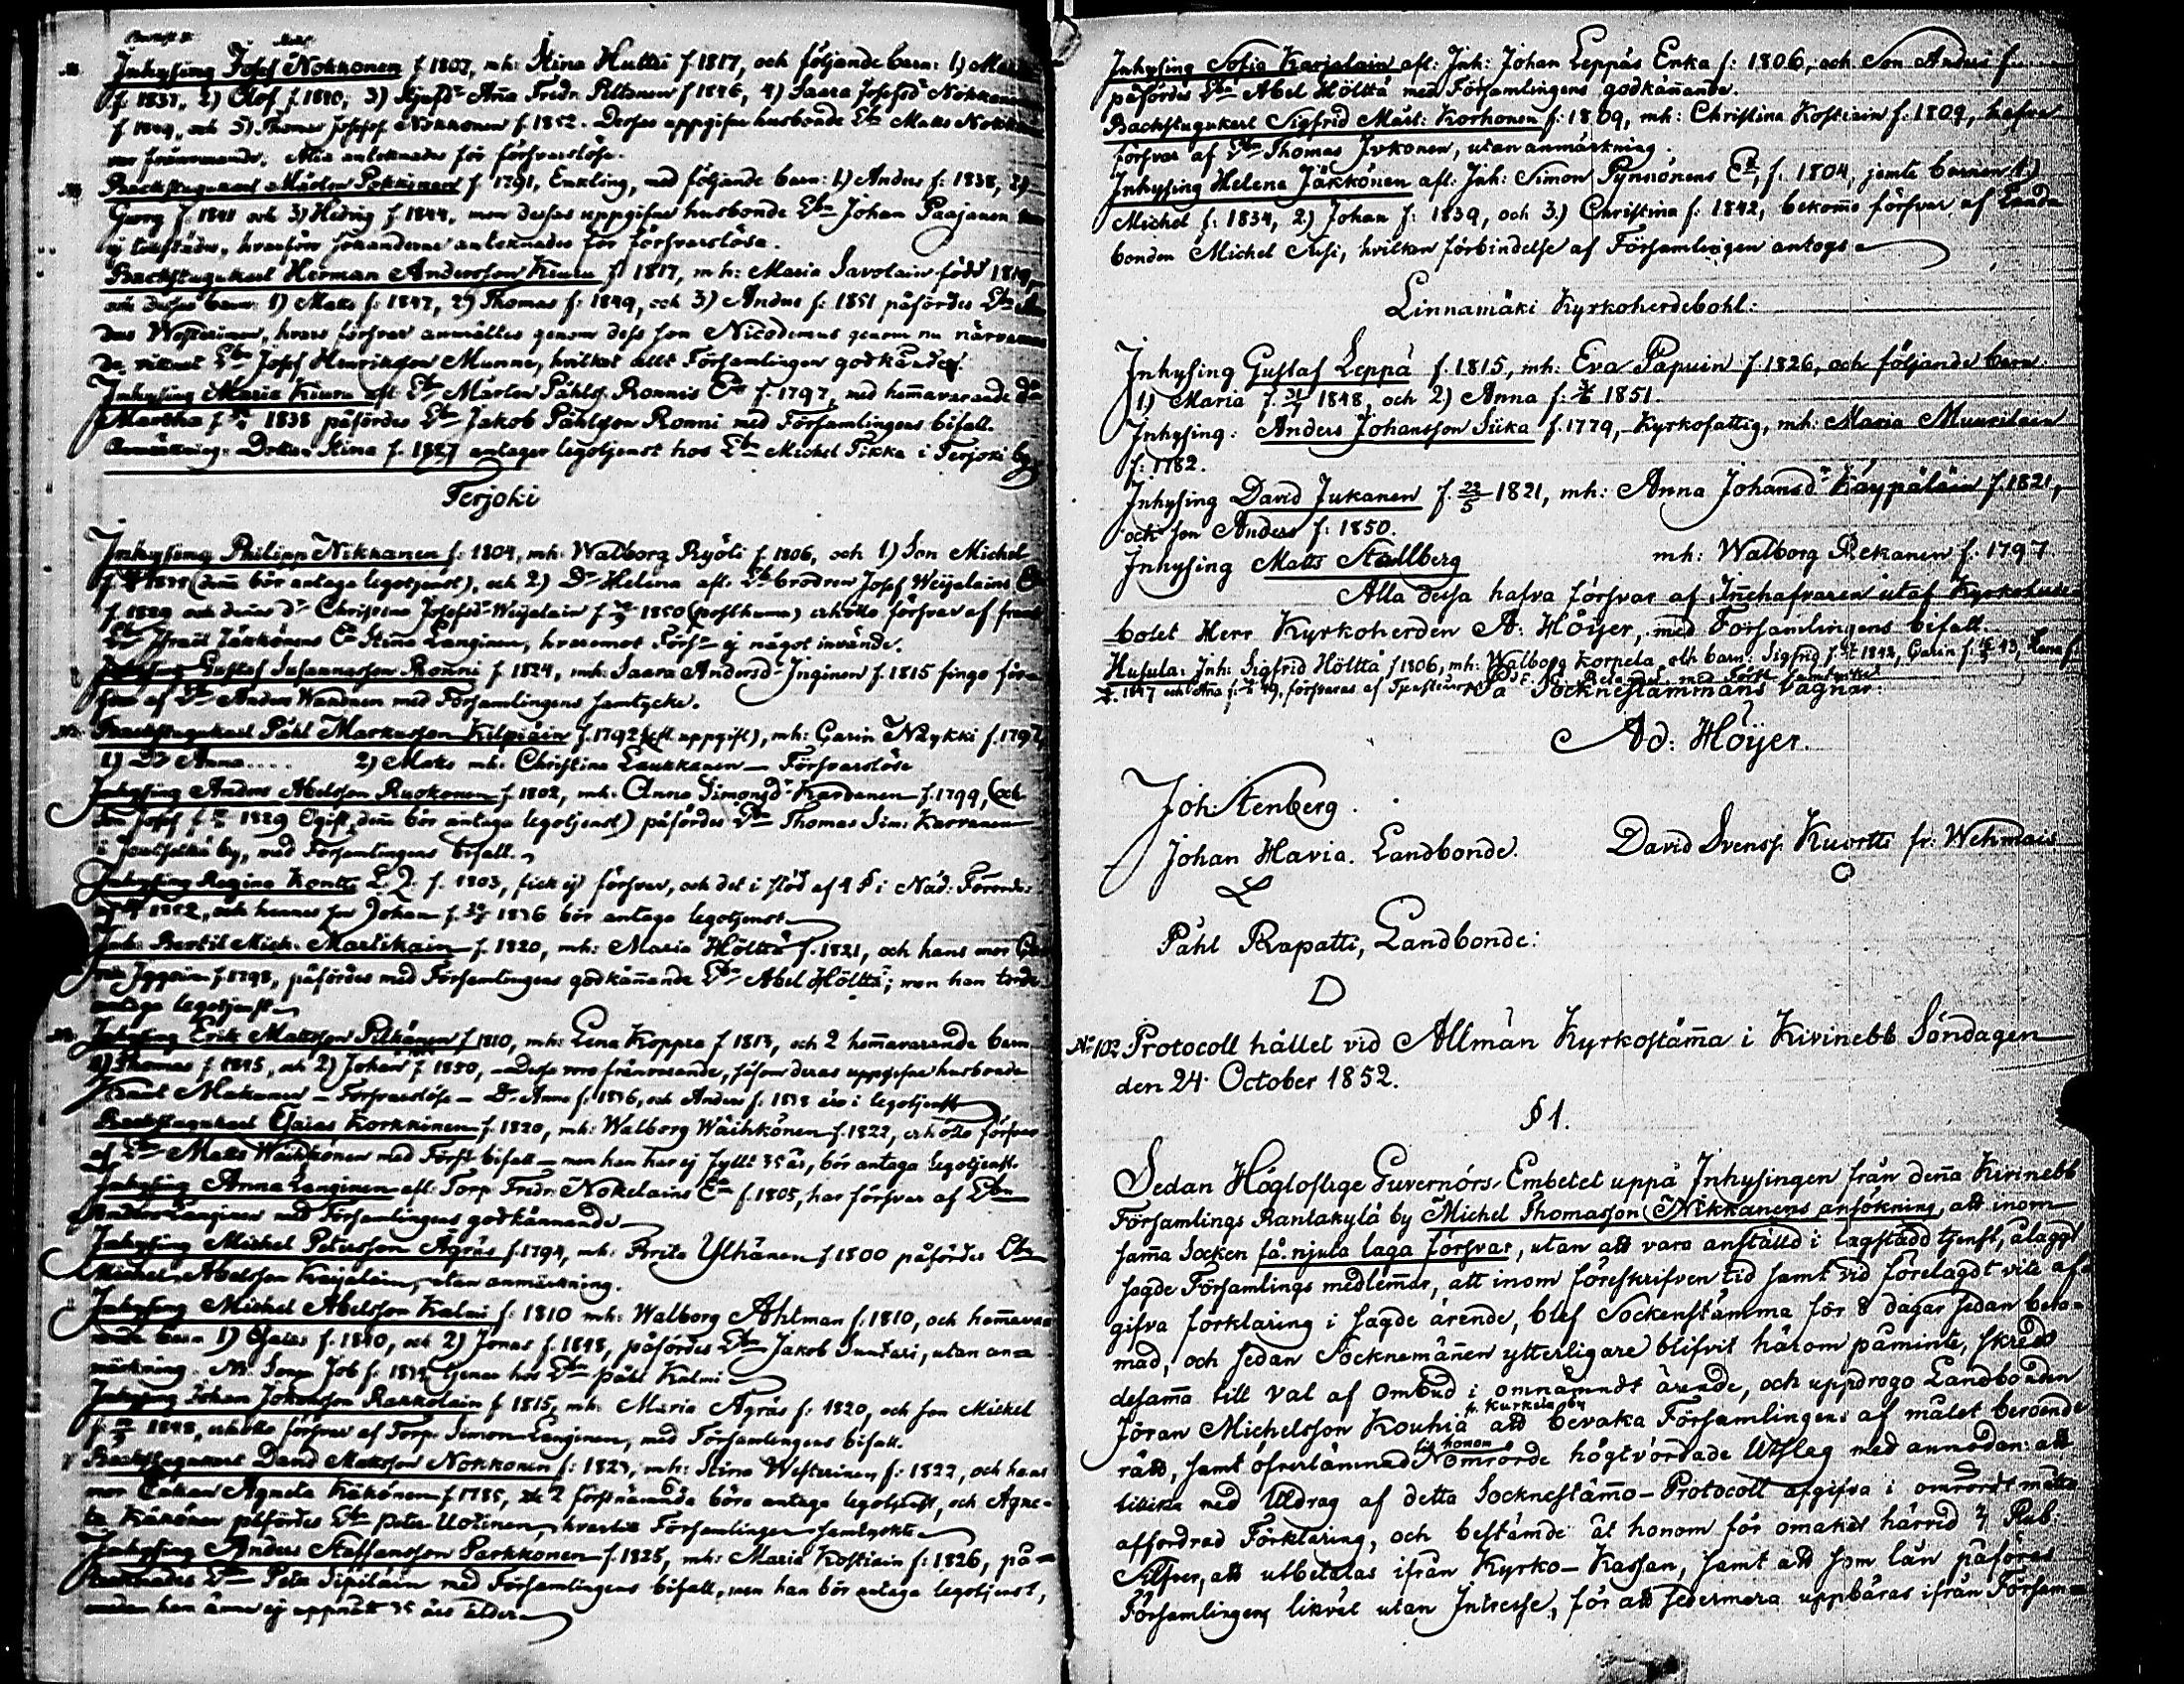 Inhysing Josef Nokkonen f 1807, mh: Stina Huttri f 1817, och följande barn: 1)
f 1837, 2) Olof f. 1840, 3) Anna Fredr. Piltonen f 1846, 4) Saara Josefsd: Nokkonen
f 1849, och 5) Thomas Josefss: Nokkonen f. 1852. Dessas uppgifne husbonde Ebn Matts
var frånvarande, Alla antecknades för försvarslöse.
Backstugukarl Mårten Pokkinen f 1791, Enkling, med följande barn: 1) Anders f: 1838, 2)
Georg f 1841 och 3) Hedvig f 1844, men dessas uppgifne husbonde Ebn Johan Paajanen
ej tillstädes, hvarföre sökanderne antecknades för försvarslösa.
Backstugukarl Herman Andersson Kiuru f 1817, mh: Maria Savolain född 1819,
och dessas barn: 1) Matts f: 1847, 2) Thomas f: 1849, och 3) Anders f: 1851 påfördes Ebn
Westerinen, hvars försvar anmältes genom dess son Nicodemus genom nu närvaran
de Ebn Josef Henriksson Munne, hvilket allt Församlingen godkändes.
Inhysing Maria Kiuru aft: Ebn Mårten Påhlss: Ronnis E:a f. 1797, med hemmavarande
Martha f 1838 påfördes Ebn Jakob Påhlsson Ronni med Församlingens bifall.
Anmärkning: Stina f. 1827 antager legotjenst hos Ebn Michel Tikka i Terjoki by
Terjoki
Inhysing Philipp Nikkanen f: 1804, mh: Walborg Ryöti f 1806, och 1) Son Michel
(denne bör antaga legotjenst), och 2) Dr Helena aft. Ebn brodren Josef Weijalains
f 1829 och dennes dr Christina Josefsdr Weijalain 1850 (posthuma) erhöllo försvar af
Israël Jäkkönens E:a Stina Langinen, hvaremot Förs:n ej något invände.
Inhysing Gustaf Susannasson Ronni f. 1824, mh: Saara Andersd: Inginen f. 1815 fingo för-
svar af Ebn Anders Wanonen med Församlingens samtycke.
Backstugukarl Påhl Markusson Kilpiäin f. 1792 (eft. uppgift), mh: Carin Näykki f. 1797,
1) Dr Anna .... 2) Matts mh: Christina Laukkanen — Försvarslöse
Inhysing Anders Abelsson Ruokonen f. 1802, mh: Anna Simonsd: Karvanen f. 1799, (och
son Josef f. 1829 Ogift, denne bör antaga legotjenst) påfördes Ebn Thomas Sim: Karvanen
i by, med Församlingens bifall.
Inhysing Regina Kontti L. Q. f. 1803, fick ej försvar, och det i stöd af 4 § i Nåd: Förordn:
1852, och hennes son Johan 1836 bör antaga legotjenst
Inh: Bertil Mich: Martikain f. 1820, mh: Maria Hölttä f. 1821, och hans mor
f. 1798, påfördes med Församlingens godkännande Ebn Abel Hölttä; men han torde
antaga legotjenst
Inhysing Erik Mattsson Pitkänen f 1810, mh: Lena Koppra f 1813, och 2 hemmavarande barn
1) Thomas f 1845, och 2) Johan f 1850, — Desse voro frånvarande, såsom deras uppgifne husbonde
Knut Mukunen — Försvarslöse — Dr Anna f: 1836, och Anders f: 1838 äro i legotjenst
Backstugukarl Esaias Korkkinen f. 1820, mh: Walborg Wäihkönen f. 1822, erhöllo försvar
af Ebn Matts Wäihkönen med Förs:s bifall — men han har ej fyllt 35 år, bör antaga legotjenst.
Inhysing Anna Langinen aft: Torp: Fredr: Nokelains E:a f. 1805, har försvar af Ebn
Anders Langinen med Församlingens godkännande
Inhysing Michel Petersson Ägräs f. 1794, mh: Brita Ylhänen f 1800 påfördes Ebn
Michel Abelsson Kaijalain, utan anmärkning.
Inhysing Michel Abelsson Kalmi f: 1810 mh: Walborg Ahlman f. 1810, och hemmava-
rande barn 1) Esaias f. 1840, och 2) Jonas f. 1848, påfördes Ebn Jakob Suntari, utan an-
märkning. Sonen Job f. tjenar hos Ebn Påhl Kalmi
Inhysing Johan Johansson Rakkolain f 1815, mh: Maria Ägräs f: 1820, och son Michel
1848, erhöllo försvar af Torp: Simon Langinen, med Församlingens bifall.
Backstugukarl David Mattsson Nokkonen f: 1823, mh: Stina Westerinen f: 1822, och hans
mor Enkan Agneta Käkönen f. 1785, de 2 förstnämnda böra antaga legotjenst, och Agne-
ta Käkönen påfördes Ebn Peter Uotinen, hvartill Församlingen samtyckte
Inhysing Anders Staffansson Parkkonen f. 1825, mh: Maria Kostiain f: 1826, på-
tecknades Ebn Peter Sipiläin med Församlingens bifall, men han bör antaga legotjenst,
medan han ännu ej uppnått 35 års ålder
Inhysing Sofia Karjalain aft: Inh: Johan Leppäs Enka f: 1806, och Son Anders f.
påfördes Ebn Abel Hölttä med Församlingens godkännande.
Backstugukarl Sigfrid Mårt: Korhonen f: 1809, mh: Christina Kostiain f: 1809, hafva
försvar af Ebn Thomas Ivkonen, utan anmärkning.
Inhysing Helena Jäkkönen aft: Inh: Simon Pynnönens E:a, f. 1804, jemte barnen 1)
Michel f: 1834, 2) Johan f: 1839, och 3.) Christina f: 1842, bekomme försvar af Landa
bonden Michel Susi, hvilken förbindelse af Församlingen antogs
Linnamäki Kyrkoherdebohl:
Inhysing Gustaf Leppä f. 1815, mh: Eva Papuin f. 1826, och följande barn
1) Maria f. 1848, och 2) Anna f: 1851.
Inhysing: Anders Johansson Siika f. 1779, Kyrkofattig, mh: Maria Muurilain
f: 1782.
Inhysing David Jukanen f. 22/5 1821, mh: Anna Johansdr Käypäläin f. 1821,
och son Anders f: 1850.
Inhysing Matts Stallberg mh: Walborg Rekanen f: 1797.
Alla dessa hafva försvar af Innehafvaren utaf Kyrkoherde-
bolet Herr Kyrkoherden A: Höijer, med Församlingens bifall.
Husula: Inh: Sigfrid Hölttä f 1806, mh: Walborg Korpela och barn: Sigfrid 1842, Carin f: 43, Lena f.
1847 och Ana f: 49, försvaras af
På Socknestämmans vägnar:
Ad: Höijer.
Joh: Stenberg.
Johan Havia. Landbonde. David Svenss: Kuortti fr: Wehmais
Påhl Rapatti, Landbonde:
D
No 102 Protocoll hållet vid Allmän Kyrkostämma i Kivinebb Söndagen
den 24 October 1852.
§ 1.
Sedan Höglöflige Guvernörs-Embetet uppå Inhysingen från denna Kivinebb
Församlings Rantakylä by Michel Thomasson Nikkanens ansökning, att inom
samma Socken få njuta laga försvar, utan att vara anställd i lagstadd tjenst, ålaggt
sagde Församlings medlemmar, att inom föreskrifven tid samt vid förelagdt vite af-
gifva förklaring i sagde ärende, blef Sockenstämma för 8 dagar sedan beta-
mad, och sedan Socknemännen ytterligare blifvit härom påminte, skredo
desamma till val af ombud i omnämndt ärende, och uppdrogo Landbonden
Jöran Michelsson Kouhia fr. Kurkela by att bevaka Församlingens af målet beroende
rätt, samt öfverlämnad till honom omrörde högtvördade Utslag med anmodan: att
tillika med Utdrag af detta Sockneståmmo-Protocoll afgifva i omrördt måtto
affordrad Förklaring, och bestämde åt honom för omaket härvid 2 Rub:
Silfver, att utbetalas ifrån Kyrko-Kassan, samt att som lån påföras
Församlingen, likväl utan Intresse, för att sedermera uppbäras ifrån Försam-